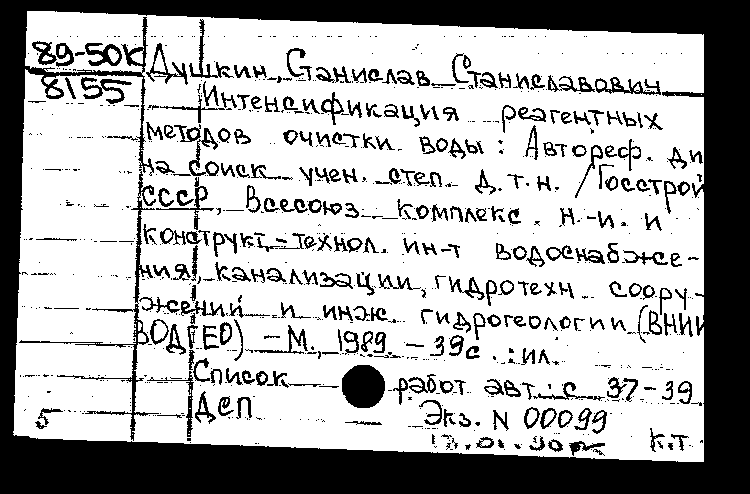 89-50К
8155
Душкин, Станислав Станиславович
Интенсификация реагентных
методов очистки воды : Автореф. ди
на соиск учен. степ. д.т.н. /Госстрой
СССР, Всесоюз. комплекс. н.-и. и
конструкт.-технол. ин-т водоснабже-
ния, канализации, гидротехн. соору-
жений и инж. гидрогеологии (ВНИИ
ВОДГЕО) – М., 1989. – 39с. : ил.
Список работ авт.: с 37-39.
ДСП – Экз. N 00099
5 К.Т